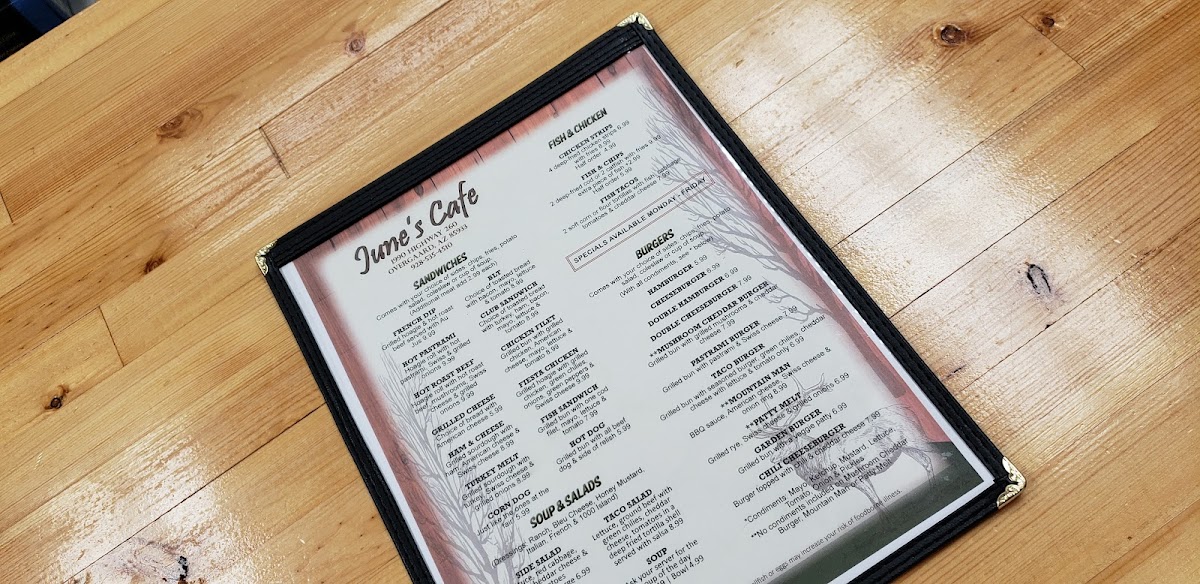 June's Cafe
1990 HIGHWAY 260
OVERGAARD, AZ 85933
928-535-4510
SANDWICHES
Comes with your choice of sides, chips, fries, potato
salad, coleslaw or cup of soup.
(Additional meat add 2.99 each)
FRENCH DIP
Grilled hoagie & hot roast
beef served with Au
Jus 9.99
HOT PASTRAMI
Hoagie roll with hot
pastrami, Swiss & grilled
onions 9.99
HOT ROAST BEEF
Hoagie roll with hot roast
beef, mushrooms, Swiss
cheese & grilled
onions 9.99
GRILLED CHEESE
Choice of bread with
American cheese 5.99
HAM & CHEESE
Grilled sourdough with
ham, American cheese &
Swiss cheese 8.99
TURKEY MELT
Grilled sourdough with
turkey, Swiss cheese &
grilled onions 8.99
CORN DOG
Just like the ones at the
fair! 5.99
BLT
Choice of toasted bread
with bacon, mayo, lettuce
& tomato 6.99
CLUB SANDWICH
Choice of toasted bread
with turkey, ham, bacon,
mayo, lettuce &
tomato 8.99
CHICKEN FILET
Grilled bun with grilled
chicken, American
cheese, mayo, lettuce &
tomato 8.99
FIESTA CHICKEN
Grilled hoagie with grilled
chicken, grilled
onions, green chilies,
green peppers &
Swiss cheese 9.99
FISH SANDWICH
Grilled bun with one cod
filet, mayo, lettuce &
tomato 7.99
HOT DOG
Grilled bun with all beef
dog & side of relish 5.99
SOUP & SALADS
(Dressings: Ranch, Bleu Cheese, Honey Mustard,
Italian, French & 1000 Island)
SIDE SALAD
red cabbage,
cheddar cheese &
TACO SALAD
Lettuce, ground beef with
green chilies, cheddar
cheese, tomatoes in a
deep fried tortilla shell
served with salsa 8.99
SOUP
your server for the
soup of the day
Bowl 4.99
FISH & CHICKEN
CHICKEN STRIPS
4 deep-fried chicken strips 6.99
with fries 8.99
Half order 4.99
FISH & CHIPS
2 deep-fried cod or 2 catfish with fries 9.99
extra piece of fish +2.99
Half order 5.99
FISH TACOS
2 soft corn or flour tortillas with fish, cabbage
tomatoes & cheddar cheese 7.99
SPECIALS AVAILABLE MONDAY - FRIDAY
BURGERS
Comes with your choice of sides, chips, fries, potato
salad, coleslaw or cup of soup.
(With all condiments, see * below)
HAMBURGER 5.99
CHEESEBURGER 6.99
DOUBLE HAMBURGER 6.99
DOUBLE CHEESEBURGER 7.99
**MUSHROOM CHEDDAR BURGER
Grilled bun with grilled mushrooms & cheddar
cheese 7.99
PASTRAMI BURGER
Grilled bun with pastrami & Swiss cheese 7.99
TACO BURGER
Grilled bun with seasoned burger, green chilies, cheddar
cheese with lettuce & tomato only 6.99
**MOUNTAIN MAN
BBQ sauce, American cheese, Swiss cheese &
onion ring 8.99
**PATTY MELT
Grilled rye, Swiss cheese & grilled onions 6.99
GARDEN BURGER
Grilled bun with a veggie patty 6.99
CHILI CHEESEBURGER
Burger topped with chili & cheddar cheese 7.99
*Condiments: Mayo, Ketchup, Mustard, Lettuce,
Tomato, Onion & Pickles
**No condiments included on Mushroom Cheddar
Burger, Mountain Man or Patty Melt
shellfish or eggs may increase your risk of foodborne illness.